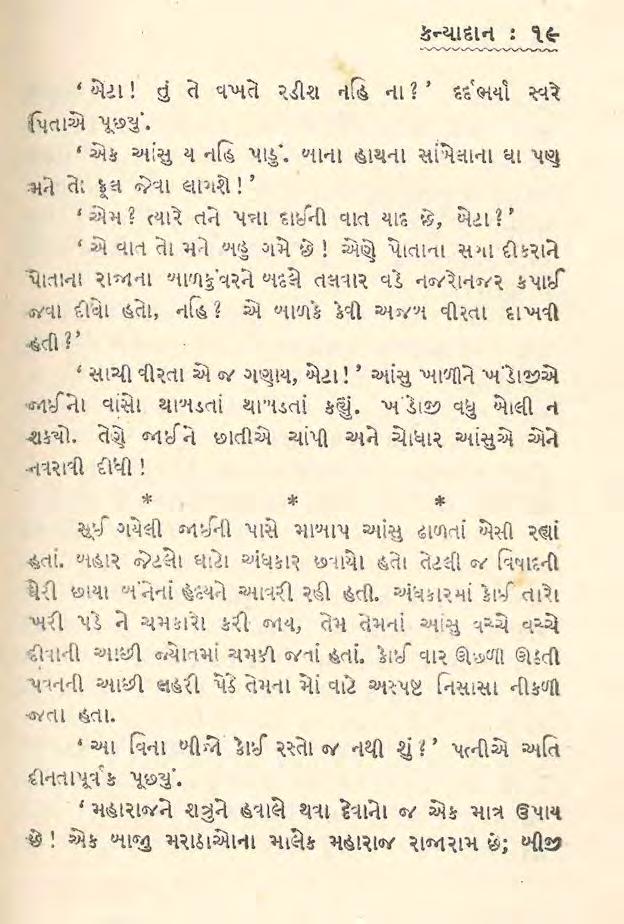 કન્યાદાન : ૧૯
‘બેટા! તું તે વખતે રડીશ નહિ ના?’ દર્દભર્યા સ્વરે
પિતાએ પૂછયું.
‘એક આંસુ ય નહિ પાડું. બાના હાથના સાંબેલાના ઘા પણ
મને તો ફૂલ જેવા લાગશે!’
‘એમ? ત્યારે તને પન્ના દાઈની વાત યાદ છે, બેટા?’
‘એ વાત તો મને બહુ ગમે છે! એણે પોતાના સગા દીકરાને
પોતાના રાજાના બાળકુંવરને બદલે તલવાર વડે નજરોનજર કપાઈ
જવા દીધો હતો, નહિ? એ બાળકે કેવી અજબ વીરતા દાખવી
હતી?’
‘સાચી વીરતા એ જ ગણાય, બેટા!’ આંસુ ખાળીને ખંડોજીએ
જાઈનો વાંસો થાબડતાં થાબડતાં કહ્યું. ખંડોજી વધુ બોલી ન
શકયો. તેણે જાઈને છાતીએ ચાંપી અને ચોધાર આંસુએ એને
નવરાવી દીધી!
* * *
સૂઈ ગયેલી જાઈની પાસે માબાપ આંસુ ઢાળતાં બેસી રહ્યાં
હતાં. બહાર જેટલો ઘાટો અંધકાર છવાયો હતો તેટલી જ વિષાદની
ઘેરી છાયા બંનેનાં હૃદયને આવરી રહી હતી. અંધકારમાં કોઈ તારો
ખરી પડે ને ચમકારો કરી જાય, તેમ તેમનાં આંસુ વચ્ચે વચ્ચે
દીવાની આછી જ્યોતમાં ચમકી જતાં હતાં. કોઈ વાર ઊછળી ઊઠતી
પવનની આછી લહરી પેઠે તેમના મોં વાટે અસ્પષ્ટ નિસાસા નીકળી
જતા હતા.
‘આ વિના બીજો કોઈ રસ્તો જ નથી શું?’ પત્નીએ અતિ
દીનતાપૂર્વક પૂછયું.
‘મહારાજને શત્રુને હવાલે થવા દેવાનો જ એક માત્ર ઉપાય
છે! એક બાજુ મરાઠાઓના માલેક મહારાજ રાજારામ છે; બીજી